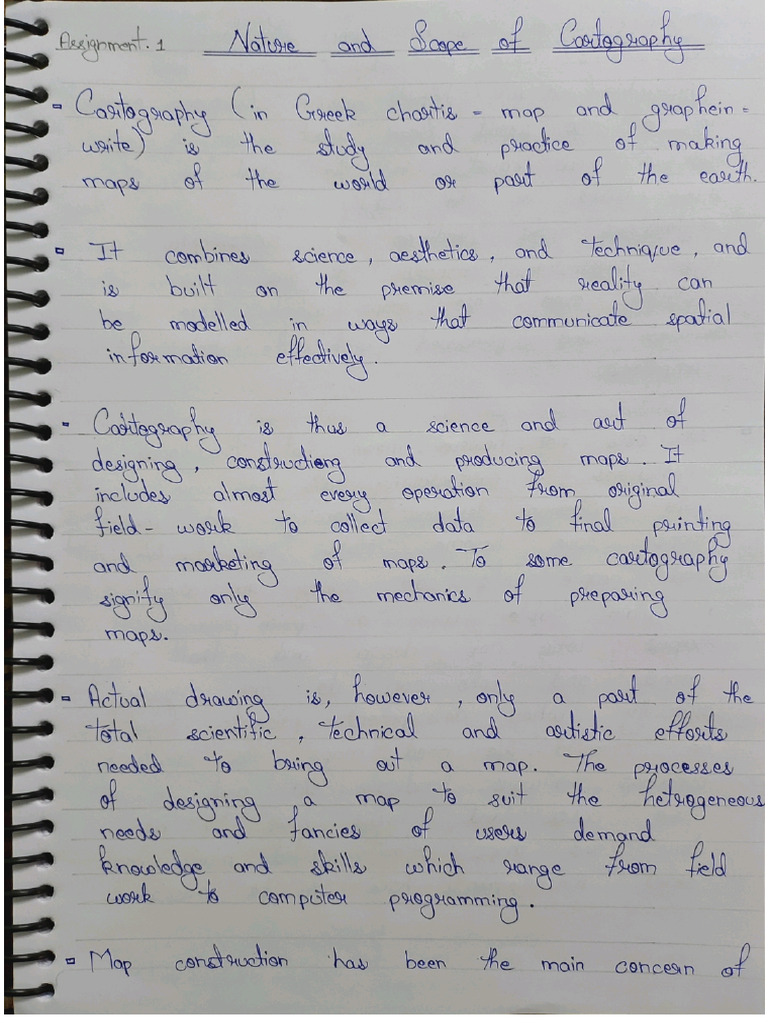 Assignment. 1 Nature and Scope of Cartography
- Cartography (in Greek chartis - map and graphein =
write) is the study and practice of making
maps of the world or part of the earth.
- It combines science, aesthetics, and technique, and
is built on the premise that reality can
be modelled in ways that communicate spatial
information effectively.
- Cartography is thus a science and art of
designing, constructieng and producing maps. It
includes almost every operation from original
field-work to collect data to final printing
and marketing of maps. To some cartography
signify only the mechanics of preparing
maps.
- Actual drawing is, however, only a part of the
total scientific, technical and artistic efforts
needed to bring out a map. The processes
of designing a map to suit the hetrogeneous
needs and fancies of users demand
knowledge and skills which range from field
work to computer programming.
- Map construction has been the main concern of